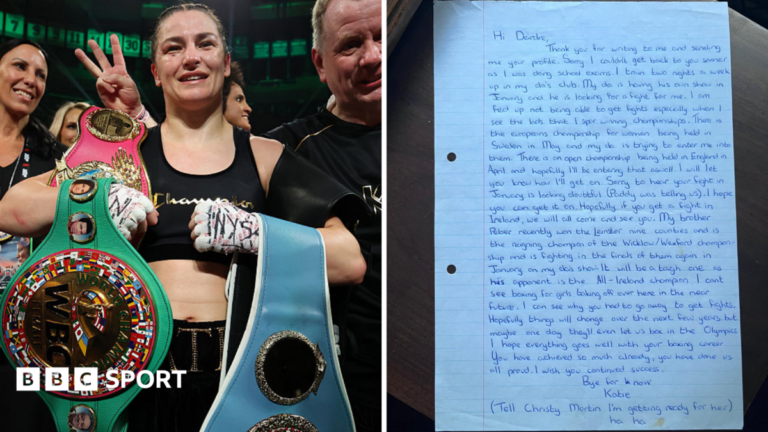 Champion
NYSA
WBC
BBC SPORT
Hi Deirdre,
Thank you for writing to me and sending
me your profile. Sorry I couldn't get back to you sooner
as I was doing school exams. I train two nights a week
up in my da's club. My da is having his own show in
January and he is looking for a fight for me. I am
fed up not being able to get fights especially when I
see the lads think I spar winning championships. There is
the europeans championship for women being held in
Sweden in May and my da is trying to enter me into
them. There is an open championship being held in England in
April and hopefully I'll be entering that aswell. I will let
you know how I'll get on. Sorry to hear your fight in
January is looking doubtful (Paddy was telling us). I hope
you can get it on. Hopefully if you get a fight in
Ireland, we will all come and see you. My brother
Peter recently won the Leinster nine counties and is
the reigning champion of the Wicklow/Wexford champion-
ship and is fighting in the finals of them again in
January on my da's show. It will be a tough one as
his opponent is the All-Ireland champion. I cant
see boxing for girls taking off over here in the near
future. I can see why you had to go away to get fights.
Hopefully things will change over the next few years but
maybe one day they'll even let us box in the Olympics
I hope everything goes well with your boxing career
You have achieved so much already, you have done us
all proud. I wish you continued success.
Bye for now
Katie
(Tell Christy Martin I'm getting ready for her)
ha ha